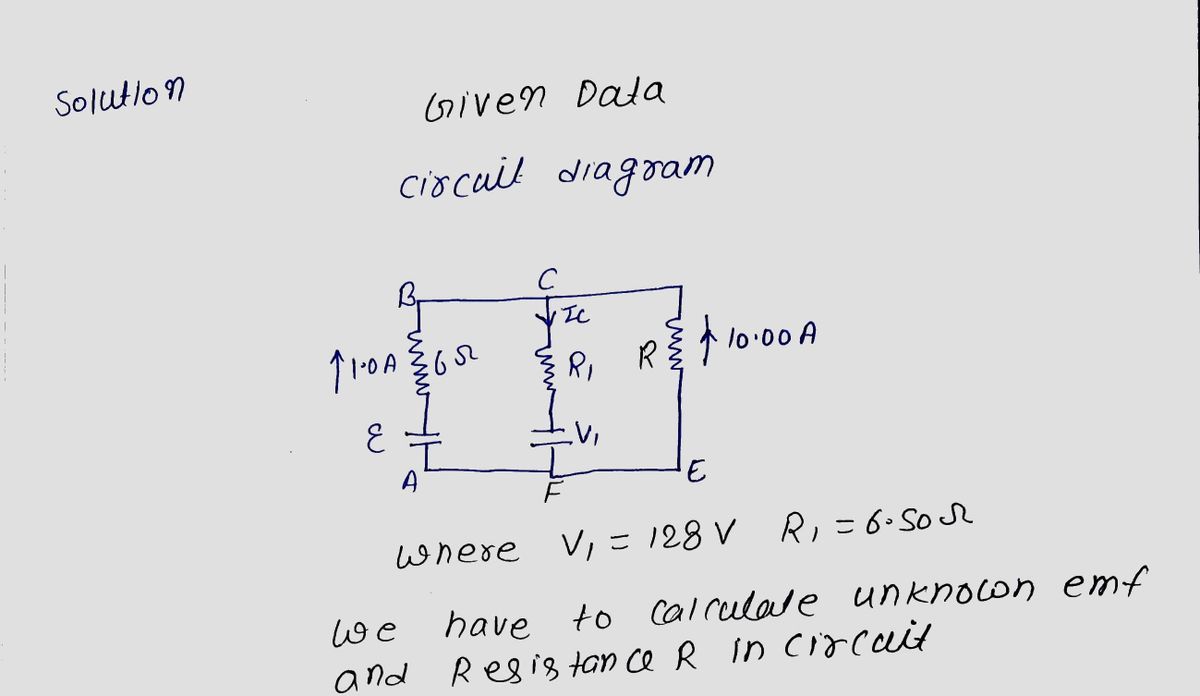 Solution
Given Data
circuit diagram
B
C
Ic
↑ 1.0 A
6 Ω
R₁
R
↑ 10.00 A
ε
V₁
A
F
E
where V₁ = 128 V R₁ = 6.50 Ω
we have to calculate unknown emf
and Resistance R in circuit